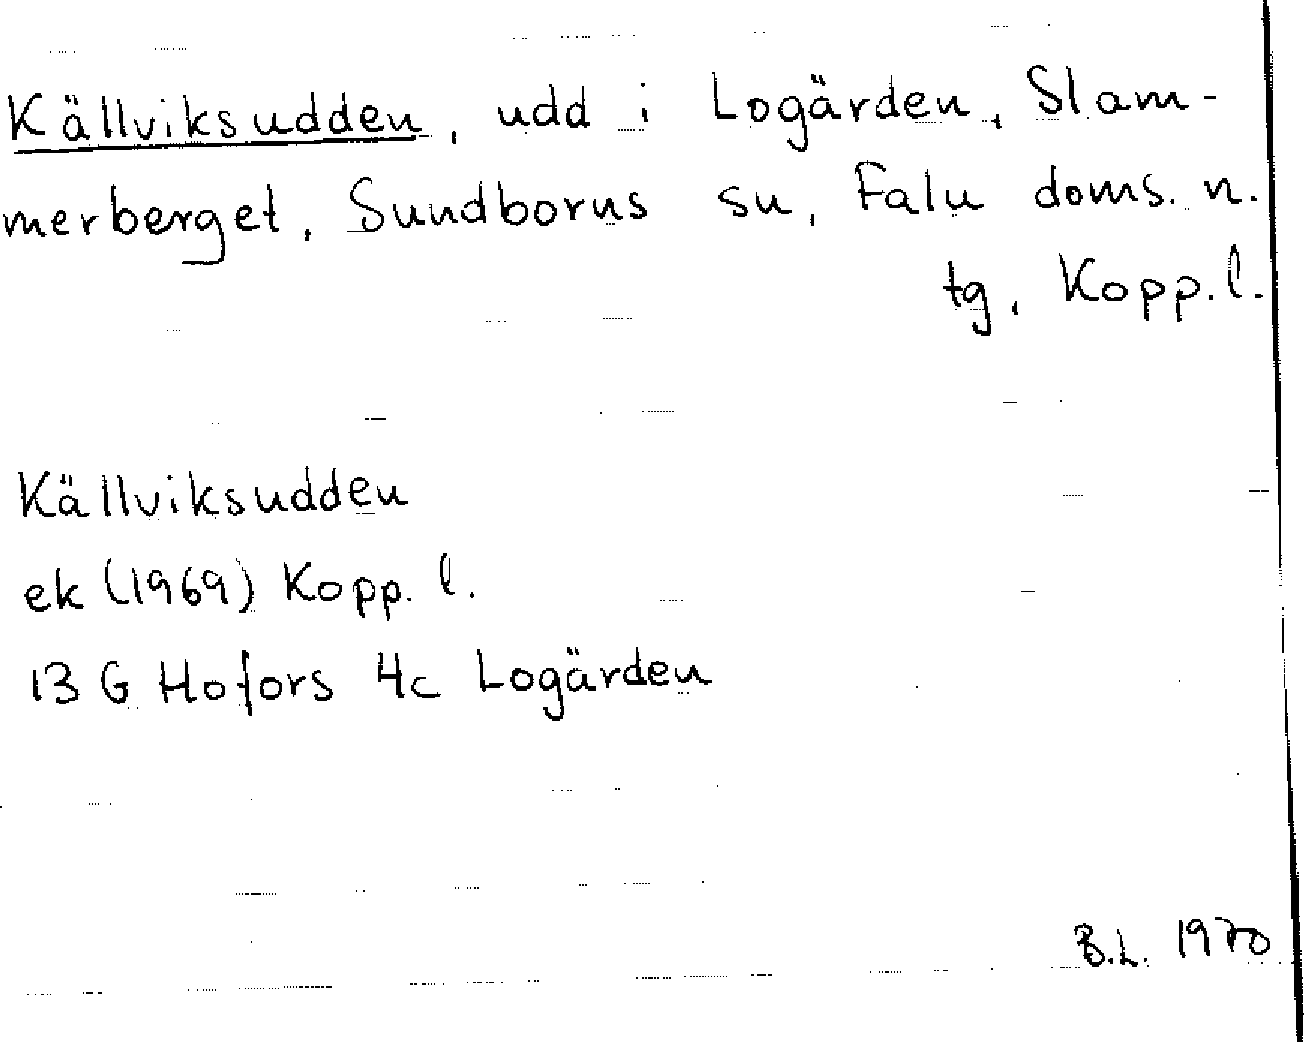 Källviksudden, udd i Logärden, Slam-
merberget, Sundborns sn, Falu doms. n.
tg, Kopp.l.
Källviksudden
ek (1969) Kopp. l.
13 G Hofors 4c Logärden
B.L. 1970